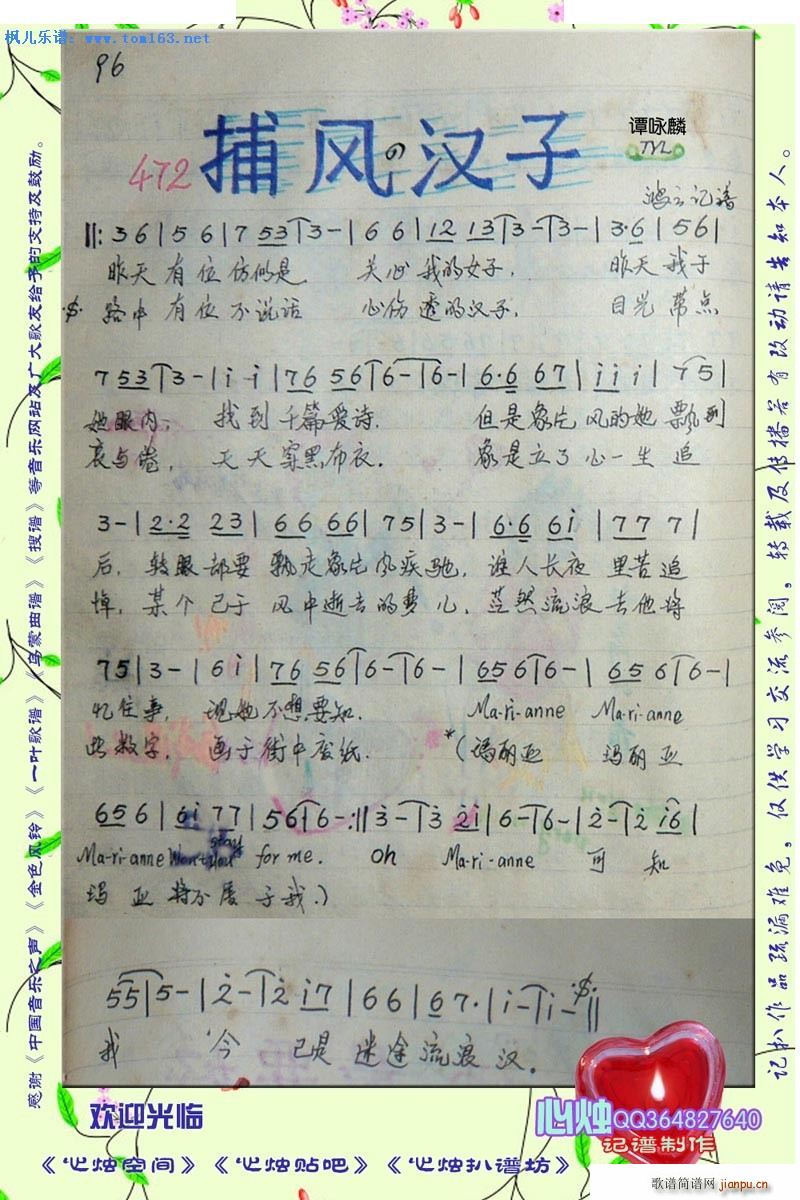 枫儿乐谱: www.tom163.net
96
472 捕风の汉子
谭咏麟
TYL
记谱
‖: 3 6 | 5 6 | 7 53 | 3 - | 6 6 | 12 13 | 3 - | 3 - | 3·6 | 5 6 |
昨天 有位 仿似是 关心 我的女子, 昨天 我于
路中 有位 不说话 心伤 透的汉子, 目光 带点
7 53 | 3 - | i i | 76 56 | 6 - | 6 - | 6·6 67 | i i i | 7 5 |
她眼内, 找到 千篇爱诗. 但是象片 风的她 飘到
哀与倦, 天天 穿黑布衣. 象是立了 心一生 追
3 - | 2·2 23 | 66 66 | 75 | 3 - | 6·6 6i | 77 7 |
后, 转眼都要 飘走象片风疾驰, 谁人长夜 里苦追
悼, 某个已于 风中逝去的梦儿, 茫然流浪 去他将
75 | 3 - | 6 i | 76 56 | 6 - | 6 - | 65 6 | 6 - | 65 6 | 6 - |
忆往事, 现她不想要知. Ma-ri-anne Ma-ri-anne
此数字, 画于街中废纸. *(玛丽亚 玛丽亚
65 6 | 6i 77 | 56 | 6 - :‖ 3 - | 3 2i | 6 - | 6 - | 2 - | 2 i6 |
Ma-ri-anne Won't you stay for me. Oh Ma-ri-anne 可 知
玛 亚 于我.)
55 | 5 - | 2 - | 2 i7 | 66 | 67· | i - | i - ‖
我 今 已是 迷途流浪 汉。
感谢《中国音乐之声》《金色风铃》《一叶歌谱》《乌蒙曲谱》《搜谱》等音乐网站及广大歌友给予的支持及鼓励。
记扒作品疏漏难免，仅供学习交流参阅，转载及传播若有改动请告知本人。
欢迎光临
心烛QQ364827640
记谱制作
《心烛空间》《心烛贴吧》《心烛扒谱坊》
歌谱简谱网
jianpu.cn